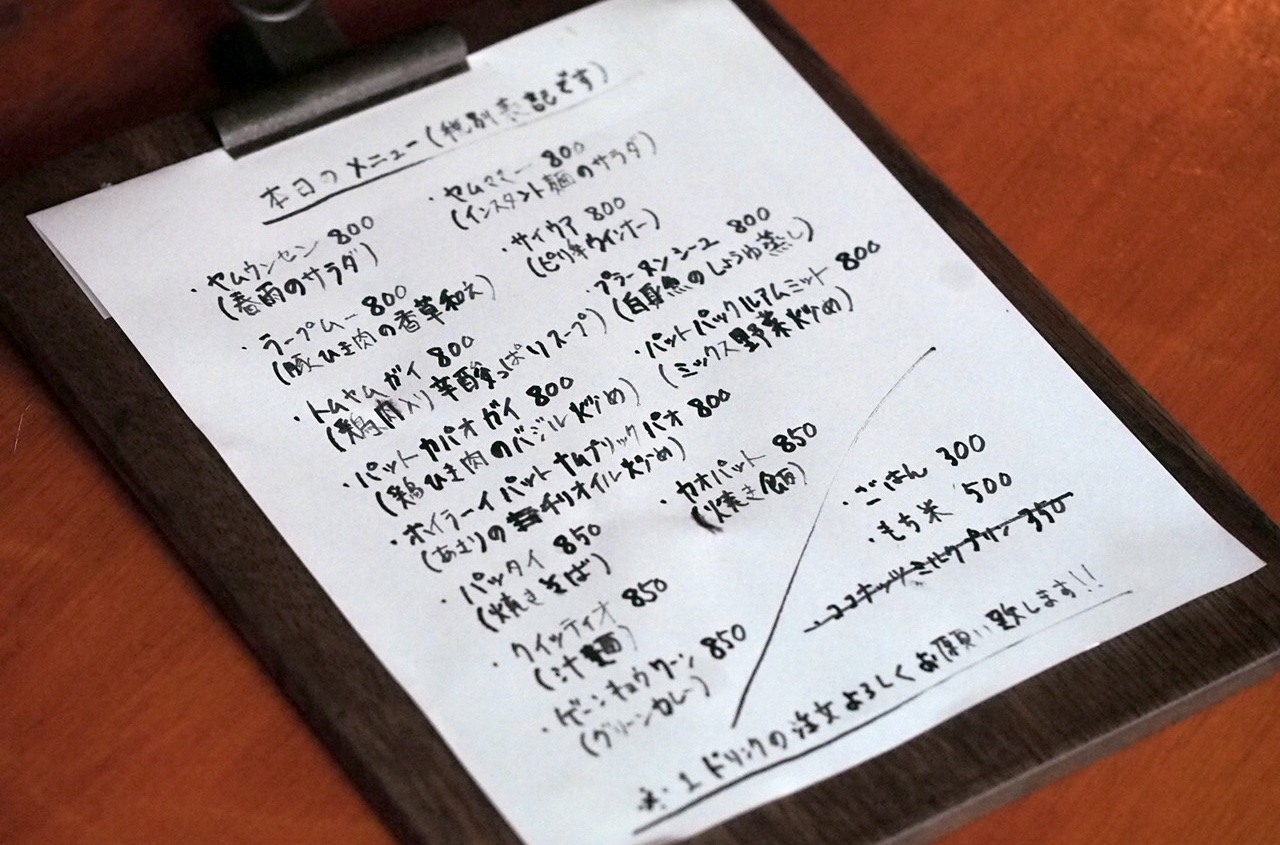 本日のメニュー(税別表記です)
・ヤムウンセン 800
(春雨のサラダ)
・ラープムー 800
(豚ひき肉の香草和え)
・トムヤムガイ 800
(鶏肉入り辛酸っぱりスープ)
・パットカパオガイ 800
(鶏ひき肉のバジル炒め)
・ホイラーイパットナムプリックパオ 800
(あさりのチリオイル炒め)
・パッタイ 850
(焼きそば)
・クイッティオ 850
(汁麺)
・ゲーンキョウワーン 850
(グリーンカレー)
・ヤムママー 800
(インスタント麺のサラダ)
・サイウア 800
(ピリ辛ウインナー)
・プラーヌンシーユ 800
(白身魚のしょうゆ蒸し)
・パットパックルアムミット 800
(ミックス野菜炒め)
・カオパット 850
(焼き飯)
・ごはん 300
・もち米 500
・ココナッツミルクプリン 350
※1ドリンクの注文よろしくお願い致します!!